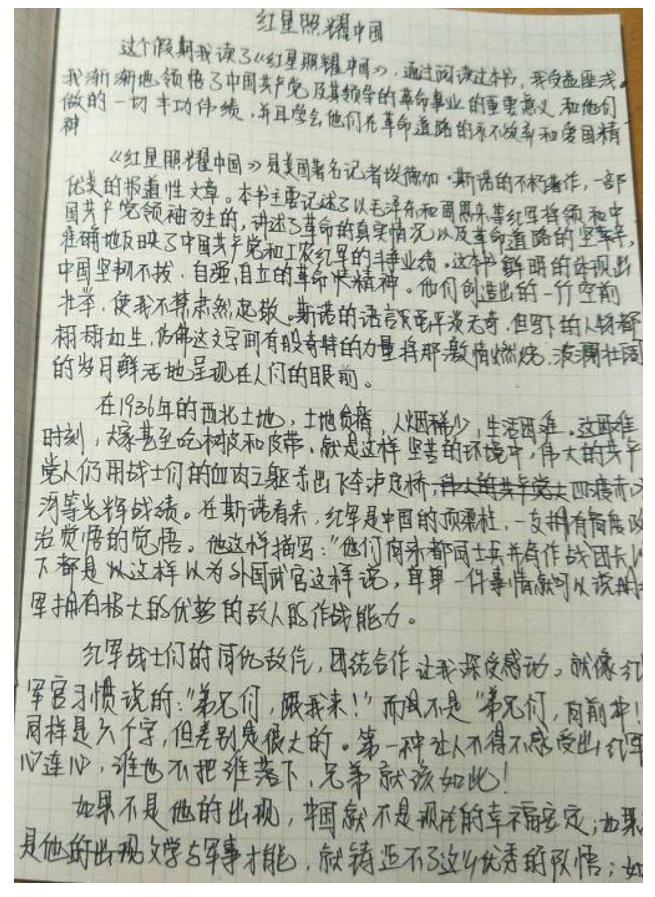 红星照耀中国
这个假期我读了《红星照耀中国》,通过阅读这本书,我受益匪浅。
我渐渐地领悟了中国共产党及其领导的革命事业的重要意义和他们
做的一切丰功伟绩,并且学会他们在革命道路的永不放弃和爱国精
神
《红星照耀中国》是美国著名记者埃德加·斯诺的不朽著作,一部
优美的报道性文章。本书主要记述了以毛泽东和周恩来等红军将领和中
国共产党领袖为主的,讲述了革命的真实情况以及革命道路的坚辛,
准确地反映了中国共产党和工农红军的斗争业绩。这本书鲜明的体现出
中国坚韧不拔,自强,自立的革命精神。他们创造出的一个空前
壮举,使我不禁肃然起敬。斯诺的语言虽平淡无奇,但笔下的人物都
栩栩如生,仿佛这文字间有股奇特的力量将那激情燃烧,波澜壮阔
的岁月鲜活地呈现在人们的眼前。
在1936年的西北土地,土地贫瘠,人烟稀少,生活困难。这困难
时刻,大家甚至吃树皮和皮带,就是这样坚苦的环境中,伟大的共产
党人仍用战士们的血肉之躯杀出飞夺泸定桥,四渡赤水
河等光辉战绩。在斯诺看来,红军是中国的顶梁柱,一支拥有高度政
治觉悟的觉悟。他这样描写:“他们向来都同士兵并肩作战团长以
下都是以这样以为外国武官这样说,单单一件事情就可以说明红
军拥有极大的优势的敌人的作战能力。
红军战士们的同仇敌忾,团结合作让我深受感动。就像红
军官习惯说的:“弟兄们,跟我来!”而不是“弟兄们,向前冲!
同样是六个字,但差别是很大的。第一种让人不得不感受出红军
心连心,谁也不把谁落下,兄弟就该如此!
如果不是他的出现,中国就不是现在的幸福安定;如果
是他的文学与军事才能,就铸造不了这么优秀的队伍;如